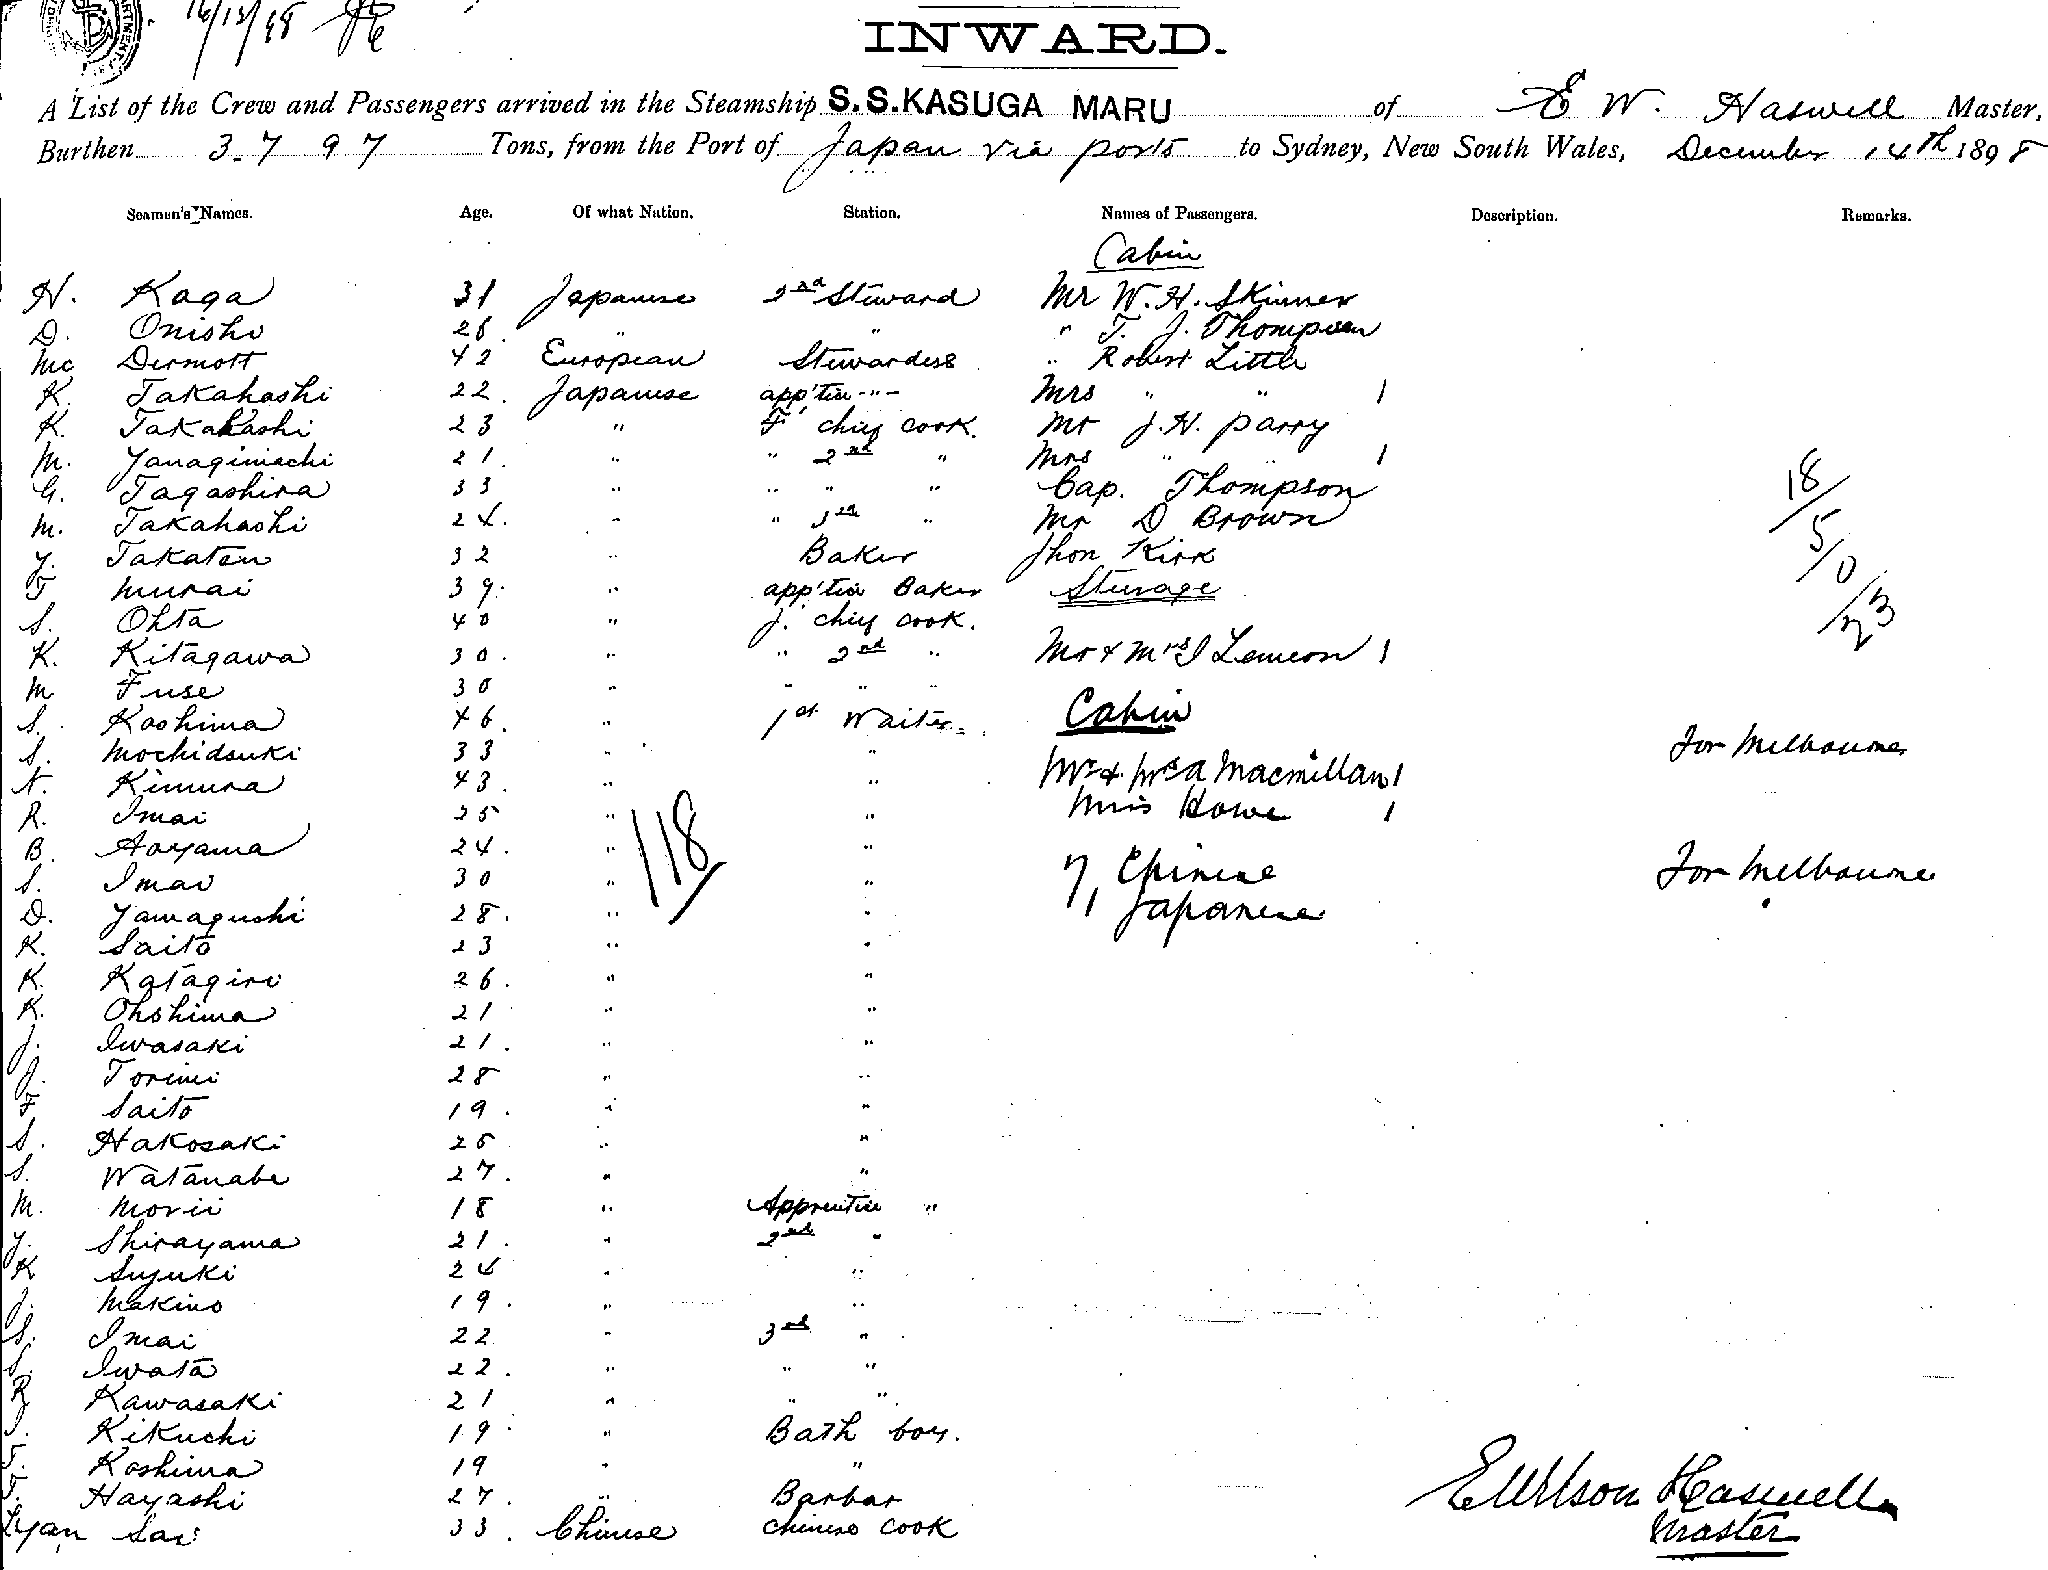 16/12/98
INWARD.
A List of the Crew and Passengers arrived in the Steamship S.S.KASUGA MARU of E W. Haswell Master,
Burthen 3797 Tons, from the Port of Japan via ports to Sydney, New South Wales, December 14th 1898
Seamen's Names. Age. Of what Nation. Station. Names of Passengers. Description. Remarks.
Cabin
H. Kaga 31 Japanese 2nd Steward Mr W. H. Skinner
D. Onishi 28 " " " T. J. Thompson
Mc Dermott 42 European Stewardess " Robert Little
K. Takahashi 22. Japanese app'tice -"- Mrs " " 1
K. Takahashi 23 " F' chief cook. Mr J. H. Parry
M. Yanagimachi 21. " " 2nd " Mrs " " 1
G. Tagashira 33 " " " " Cap. Thompson
M. Takahashi 24. " " 3rd " Mr D Brown
Y. Takaten 32 " Baker Jhon Kirk
T Murai 39. " app'tice Baker Steerage
S. Ohta 40 " J. chief cook.
K. Kitagawa 30. " " 2nd " Mr & Mrs J Lemeon 1
M Fuse 30 " " " "
S. Koshima 46. " 1st Waiter Cabin
S. Mochidsuki 33 " " For Melbourne
N. Kimura 43. " " Mr & Mrs A Macmillan 1
R. Imai 25 " " Miss Howe 1
B. Aoyama 24. " "
S. Imai 30 " " 7, Chinese For Melbourne
D. Yamagushi 28. " " 1 Japanese
K. Saito 23 " "
K. Katagiri 26. " "
K. Ohshima 21 " "
J. Iwasaki 21. " "
J. Torimi 28 " "
F Saito 19. " "
S. Hakosaki 25 " "
S. Watanabe 27. " "
M. Morii 18 " Apprentice "
Y. Shirayama 21. " 2nd "
K Sujuki 24 " "
J. Makino 19. " "
S. Imai 22 " 3rd "
S. Iwata 22. " " "
R Kawasaki 21 " " "
Kikuchi 19. " Bath boy.
T. Koshima 19 " "
T. Hayashi 27. " Barbar
Sai 33. Chinese Chinese cook
118
18/
5/
0/
23
E Wilson Haswell
Master